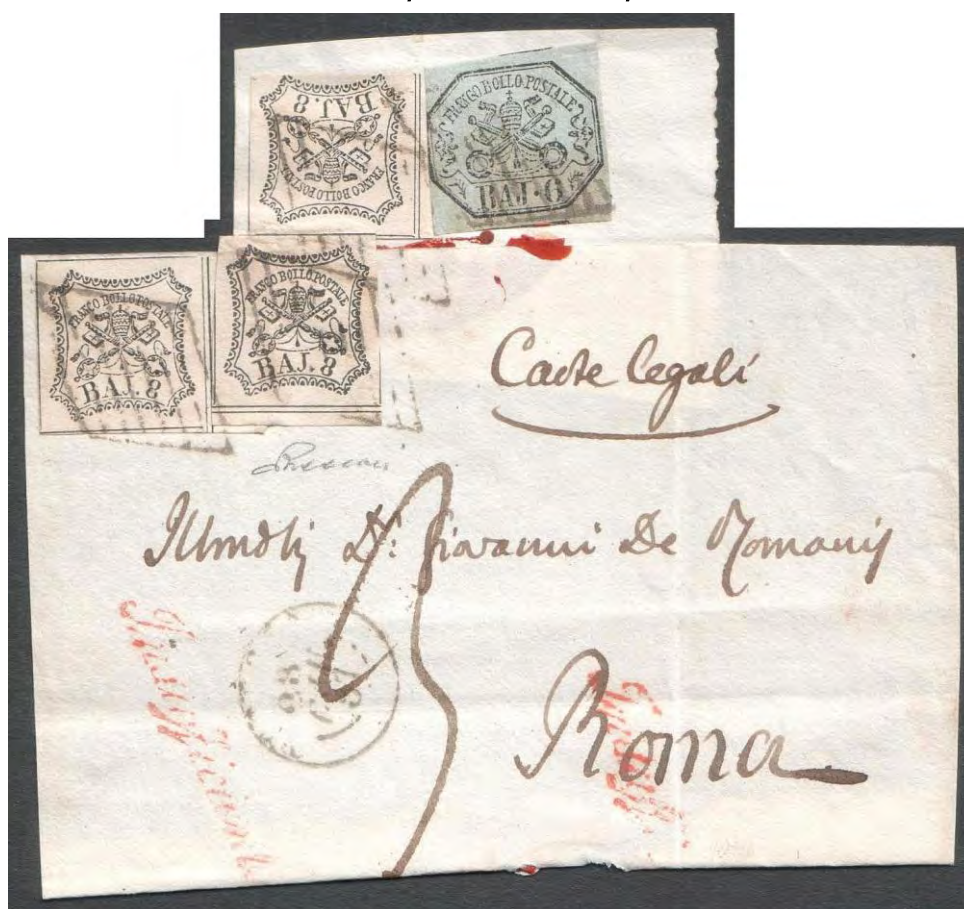 FRANCO BOLLO POSTALE
BAJ. 8
FRANCO BOLLO POSTALE
BAJ. 6
FRANCO BOLLO POSTALE
BAJ. 8
FRANCO BOLLO POSTALE
BAJ. 8
Carte legali
Giovanni De Romanis
3
28
Roma